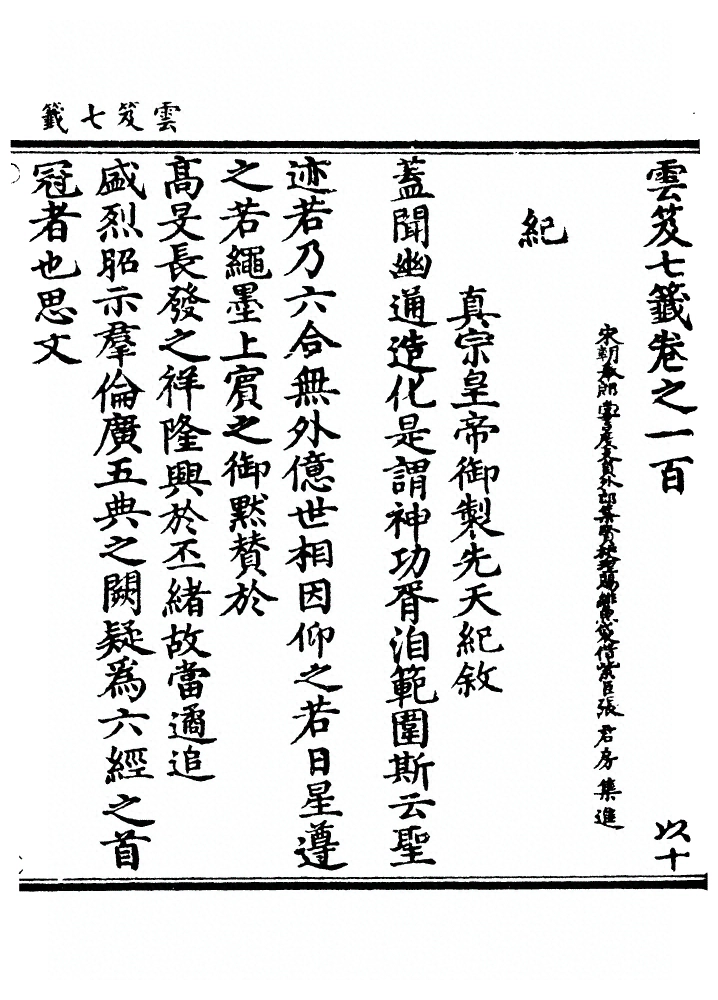 雲笈七籤
雲笈七籤卷之一百
以十
宋朝奉郎尚書度支員外郎集賢校理賜緋魚袋借紫臣張君房集進
紀
真宗皇帝御製先天紀敘
蓋聞幽通造化是謂神功胥洎範圍斯云聖
迹若乃六合無外億世相因仰之若日星遵
之若繩墨上賓之御默贊於
高旻長發之祥隆興於丕緒故當遹追
盛烈昭示羣倫廣五典之闕疑爲六經之首
冠者也思文